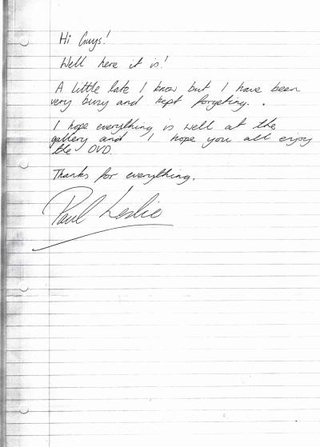 Hi Guys!
Well here it is!
A little late I know but I have been
very busy and kept forgeting. .
I hope everything is well at the
gallery and I hope you all enjoy
the DVD.
Thanks for everything.
Paul Leslie